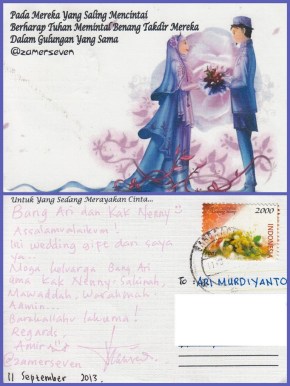 Pada Mereka Yang Saling Mencintai
Berharap Tuhan Memintal Benang Takdir Mereka
Dalam Gulungan Yang Sama
@zamerseven
Untuk Yang Sedang Merayakan Cinta...
Bang Ari dan Kak Nenny
Assalamualaikum!
Ini wedding gipt dari saya
ya
Moga keluarga Bang Ari
ama Kak Nenny Sakinah,
Mawaddah, Warahmah
Aamiin...
Barakallahu lakuma!
Regards,
Amira
@zamerseven
11 September 2013.
2000
INDONESIA
To : ARI MURDIYANTO